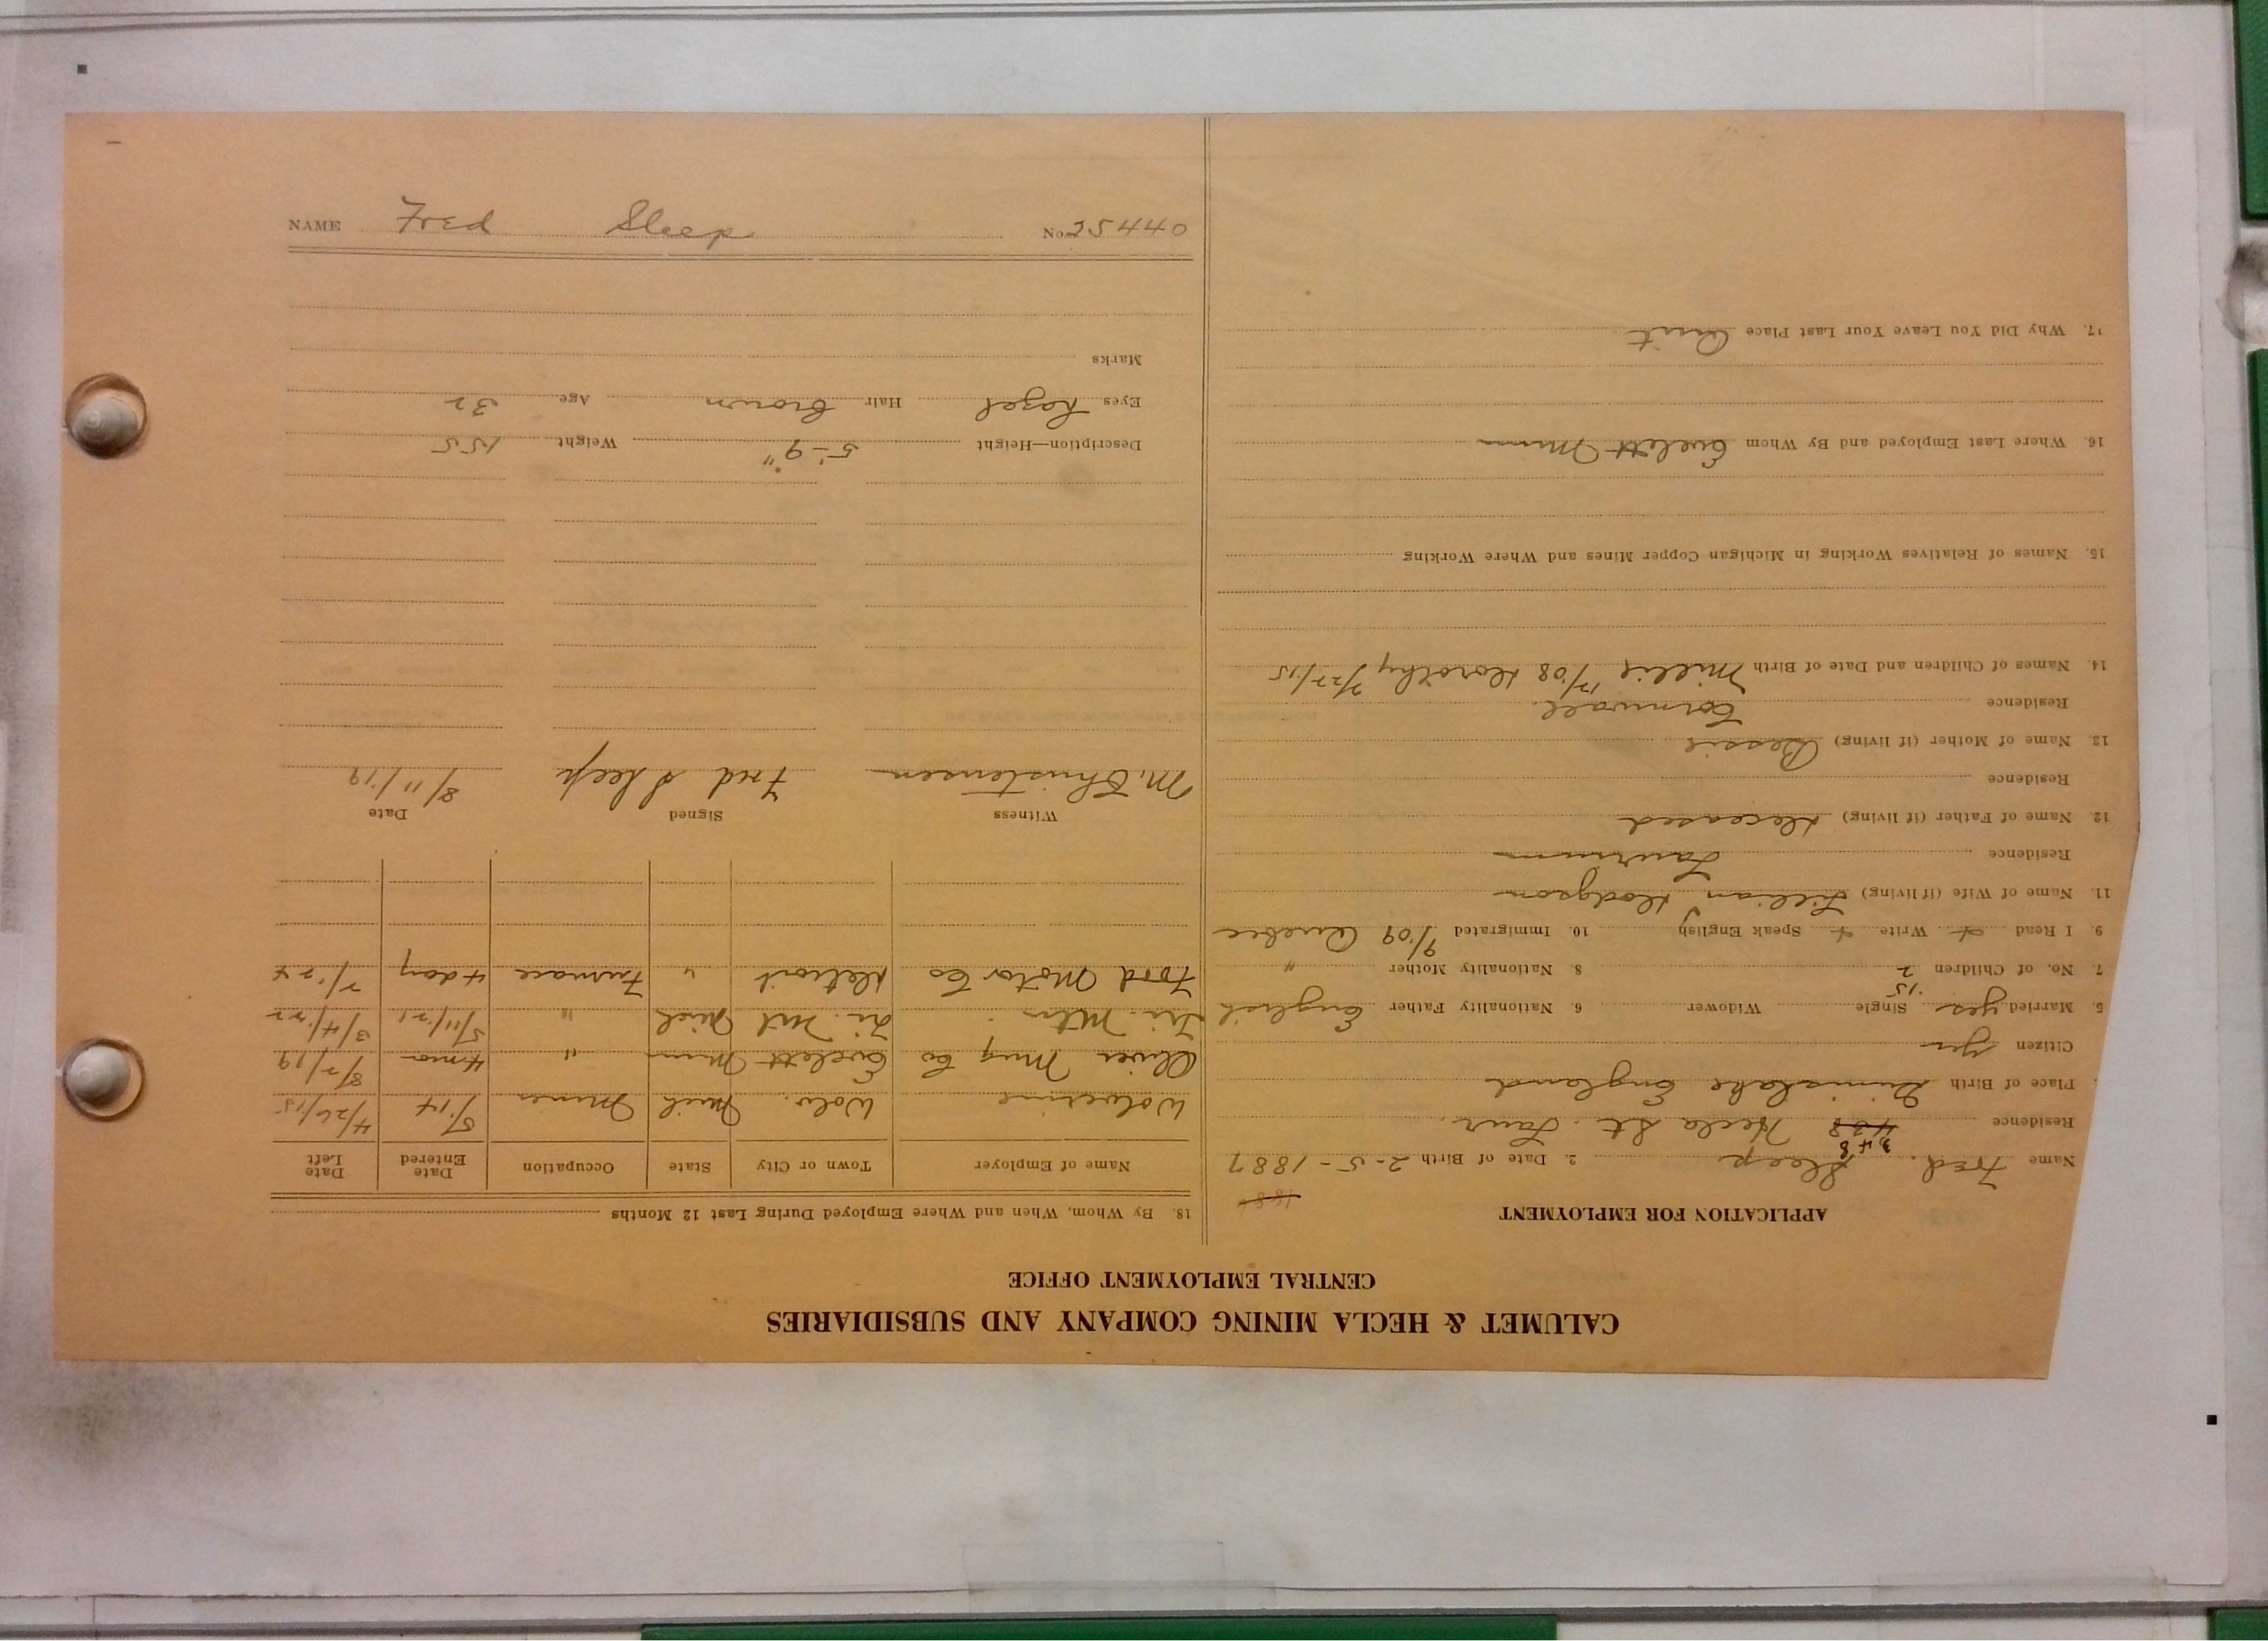 CALUMET & HECLA MINING COMPANY AND SUBSIDIARIES
CENTRAL EMPLOYMENT OFFICE
APPLICATION FOR EMPLOYMENT
Name Fred. Sleep 2. Date of Birth 2-5-1887
Residence 438 348 Hecla St. Laur.
Place of Birth Gunnislake England
Citizen Yes
5. Married yes '15 Single Widower 6. Nationality Father English
7. No. of Children 2 8. Nationality Mother "
9. I Read + Write + Speak English 10. Immigrated 9/09 Quebec
11. Name of Wife (if living) Lillian Hodgson
Residence Laurium
12. Name of Father (if living) Deceased
Residence
13. Name of Mother (if living) Bessie
Residence Cornwall.
14. Names of Children and Date of Birth Millie 12/08 Dorothy 7/27/15
15. Names of Relatives Working in Michigan Copper Mines and Where Working
16. Where Last Employed and By Whom Evelett Minn
17. Why Did You Leave Your Last Place Quit
18. By Whom, When and Where Employed During Last 12 Months
Name of Employer Town or City State Occupation Date Entered Date Left
Wolverine Wolv. Mich Miner 5/14 4/26/15
Oliver Mng Co Evelett Minn " 4 mo 8/2/19
Tri. Mtn. Tri. Mt Mich " 5/11/21 3/4/22
Ford Motor Co Detroit " Furnace 4 day 7/24
Witness Signed Date
M. Christensen Fred Sleep 8/11/19
Description—Height 5'-9" Weight 155
Eyes hazel Hair brown Age 32
Marks
NAME Fred Sleep No. 25440